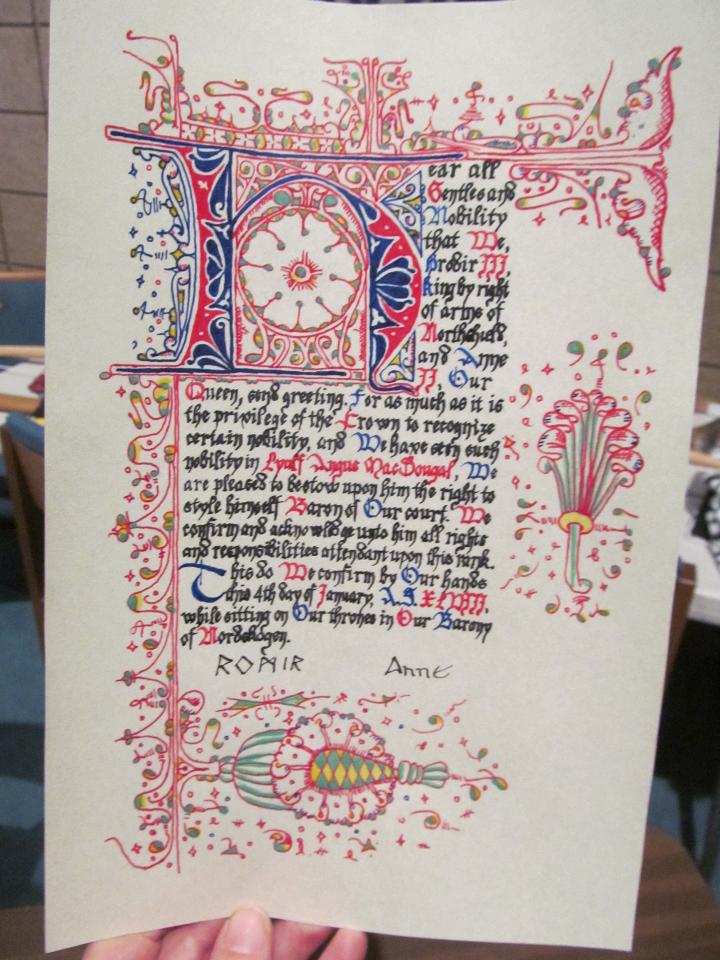 Hear all
Gentles and
Nobility
that We,
King by right
of arms of
Northshield,
and Anne
II, Our
Queen, send greeting. For as much as it is
the privilege of the Crown to recognize
certain nobility, and We have seen such
nobility in Angus MacDougal, We
are pleased to bestow upon him the right to
style himself Baron of Our court. We
confirm and acknowledge unto him all rights
and responsibilities attendant upon this rank.
This do We confirm by Our hands
this 4th day of January, A.S. XLVIII,
while sitting on Our thrones in Our Barony
of Nordskogen.
Anne